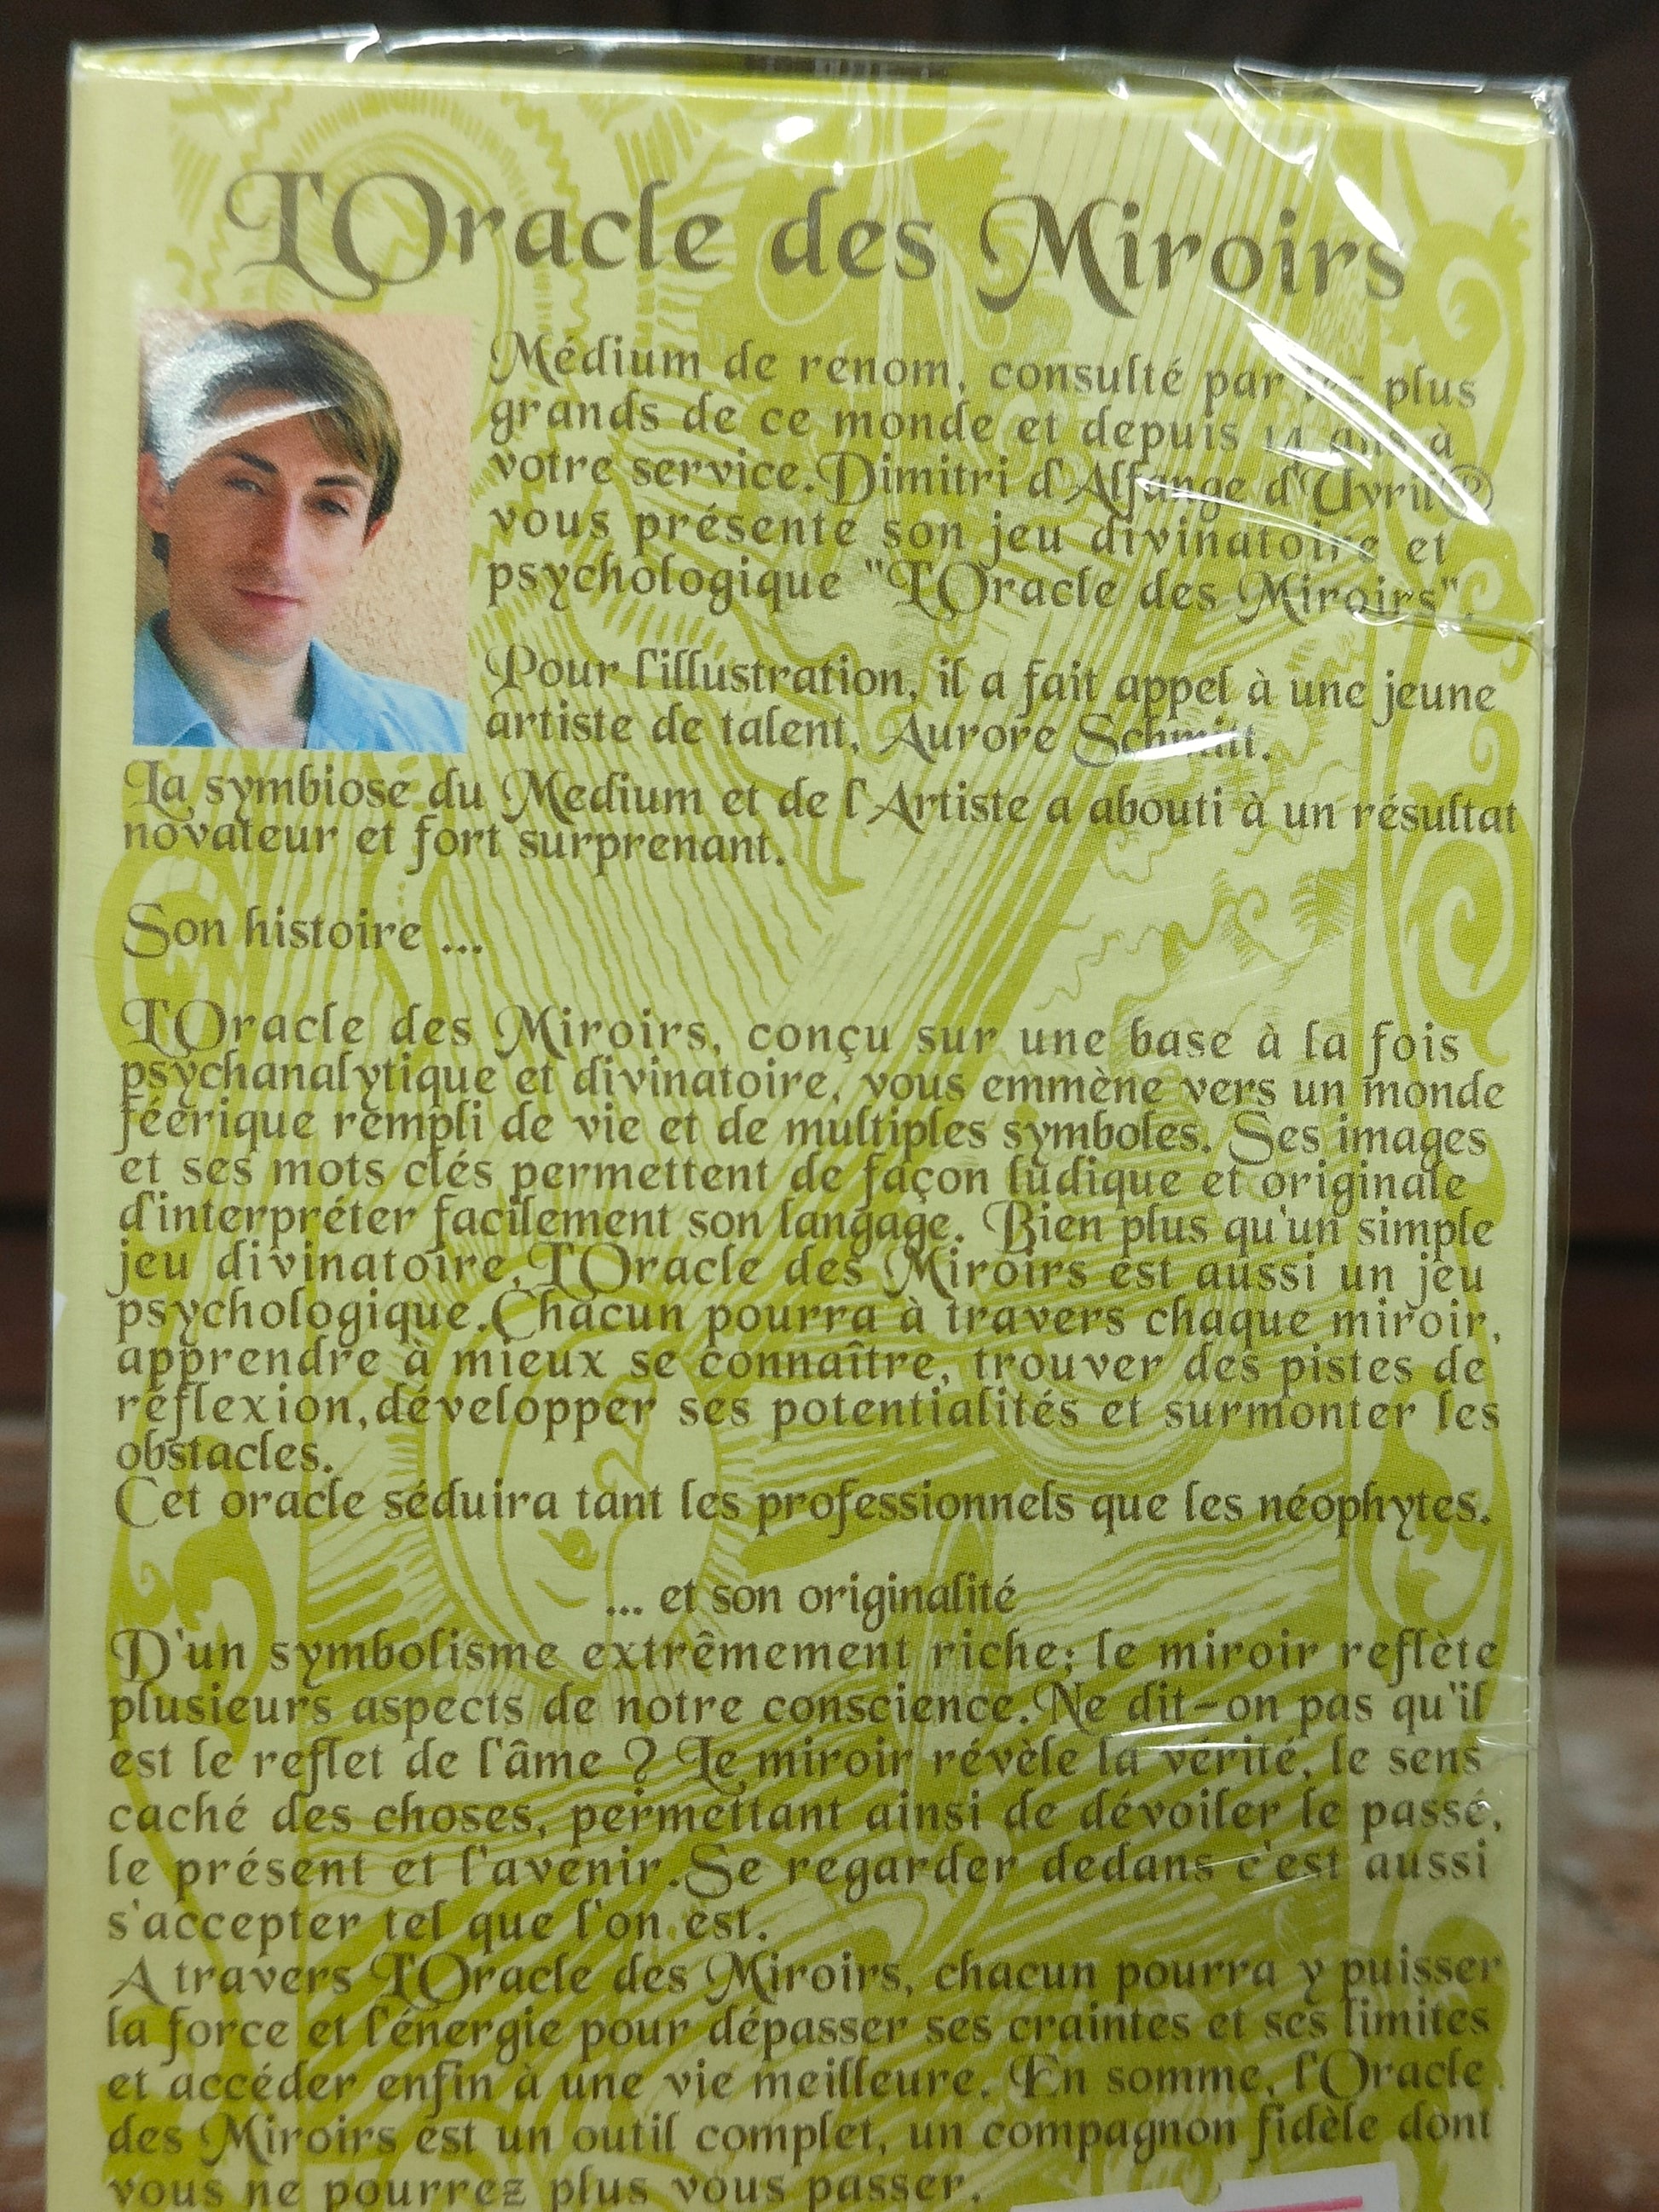 L'Oracle des Miroirs
Médium de renom, consulté par les plus
grands de ce monde et depuis 14 ans à
votre service.Dimitri d'Alfange d'Uvril®
vous présente son jeu divinatoire et
psychologique "L'Oracle des Miroirs".
Pour l'illustration, il a fait appel à une jeune
artiste de talent, Aurore Schmitt.
La symbiose du Medium et de l'Artiste a abouti à un résultat
novateur et fort surprenant.
Son histoire ...
L'Oracle des Miroirs, conçu sur une base à la fois
psychanalytique et divinatoire, vous emmène vers un monde
féerique rempli de vie et de multiples symboles. Ses images
et ses mots clés permettent de façon ludique et originale
d'interpréter facilement son langage. Bien plus qu'un simple
jeu divinatoire,L'Oracle des Miroirs est aussi un jeu
psychologique.Chacun pourra à travers chaque miroir,
apprendre à mieux se connaître, trouver des pistes de
réflexion,développer ses potentialités et surmonter les
obstacles.
Cet oracle séduira tant les professionnels que les néophytes.
... et son originalité
D'un symbolisme extrêmement riche; le miroir reflète
plusieurs aspects de notre conscience.Ne dit-on pas qu'il
est le reflet de l'âme ? Le miroir révèle la vérité, le sens
caché des choses, permettant ainsi de dévoiler le passé,
le présent et l'avenir.Se regarder dedans c'est aussi
s'accepter tel que l'on est.
A travers L'Oracle des Miroirs, chacun pourra y puisser
la force et l'énergie pour dépasser ses craintes et ses limites
et accéder enfin à une vie meilleure. En somme, l'Oracle
des Miroirs est un outil complet, un compagnon fidèle dont
vous ne pourrez plus vous passer.